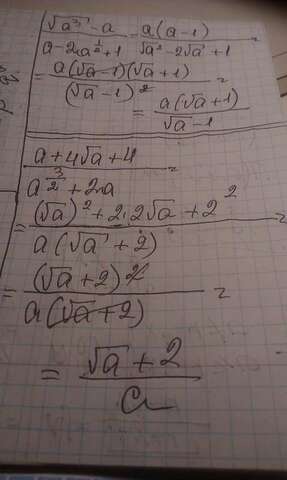 √a³ - a / a - 2a^(1/2) + 1 = a(a - 1) / √a² - 2√a + 1 =
= a(√a - 1)(√a + 1) / (√a - 1)² =
= a(√a + 1) / √a - 1
a + 4√a + 4 / a^(3/2) + 2a =
= (√a)² + 2·2√a + 2² / a(√a + 2) =
= (√a + 2)² / a(√a + 2) =
= √a + 2 / a